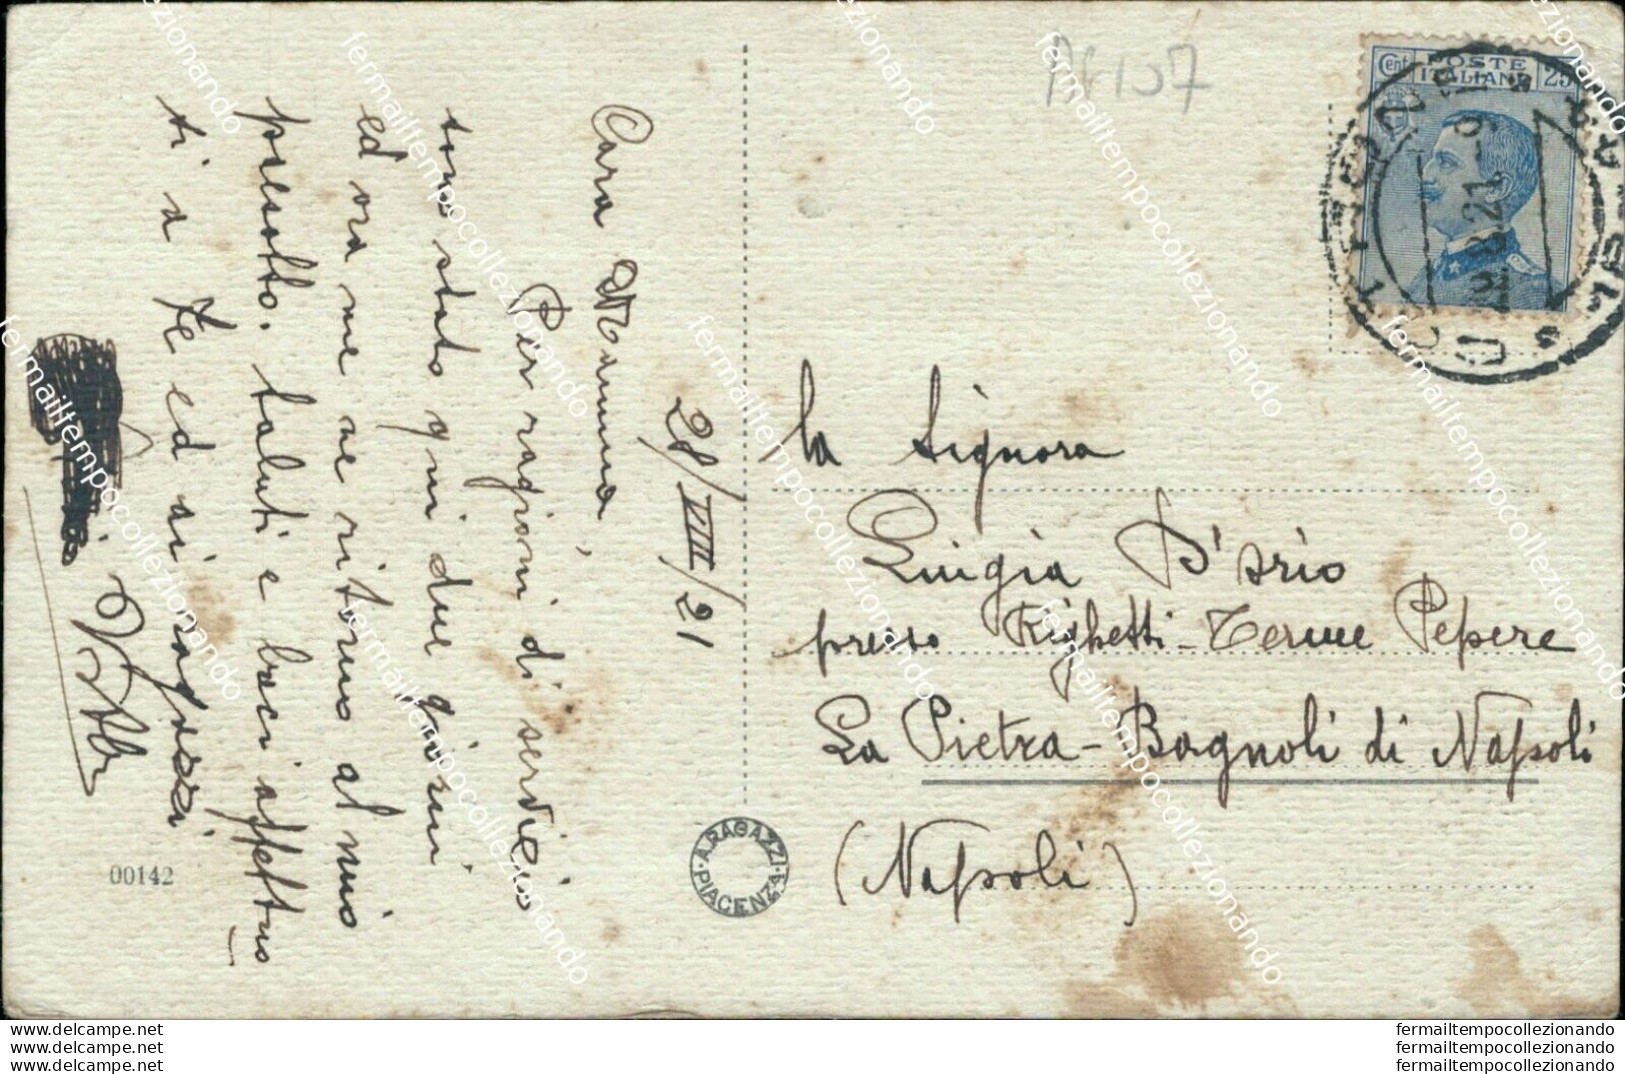 AG157
Cent. POSTE ITALIANE 25
28/VIII/21
Cara Mamma,
Per ragioni di servizio
sono stato qui due giorni
ed ora me ne ritorno al mio
presotto. Saluti e baci affettuo
si a Te ed ai ragazzi
la Signora
Luigia D'
presso Righetti - Terme Pepere
La Pietra - Bagnoli di Napoli
(Napoli)
A. RAGAZZI & F. PIACENZA
00142
fermailtempocollezionando
su.delcampe.net
su.delcampe.net
su.delcampe.net
fermailtempocollezionando
fermailtempocollezionando
fermailtempocollezionando